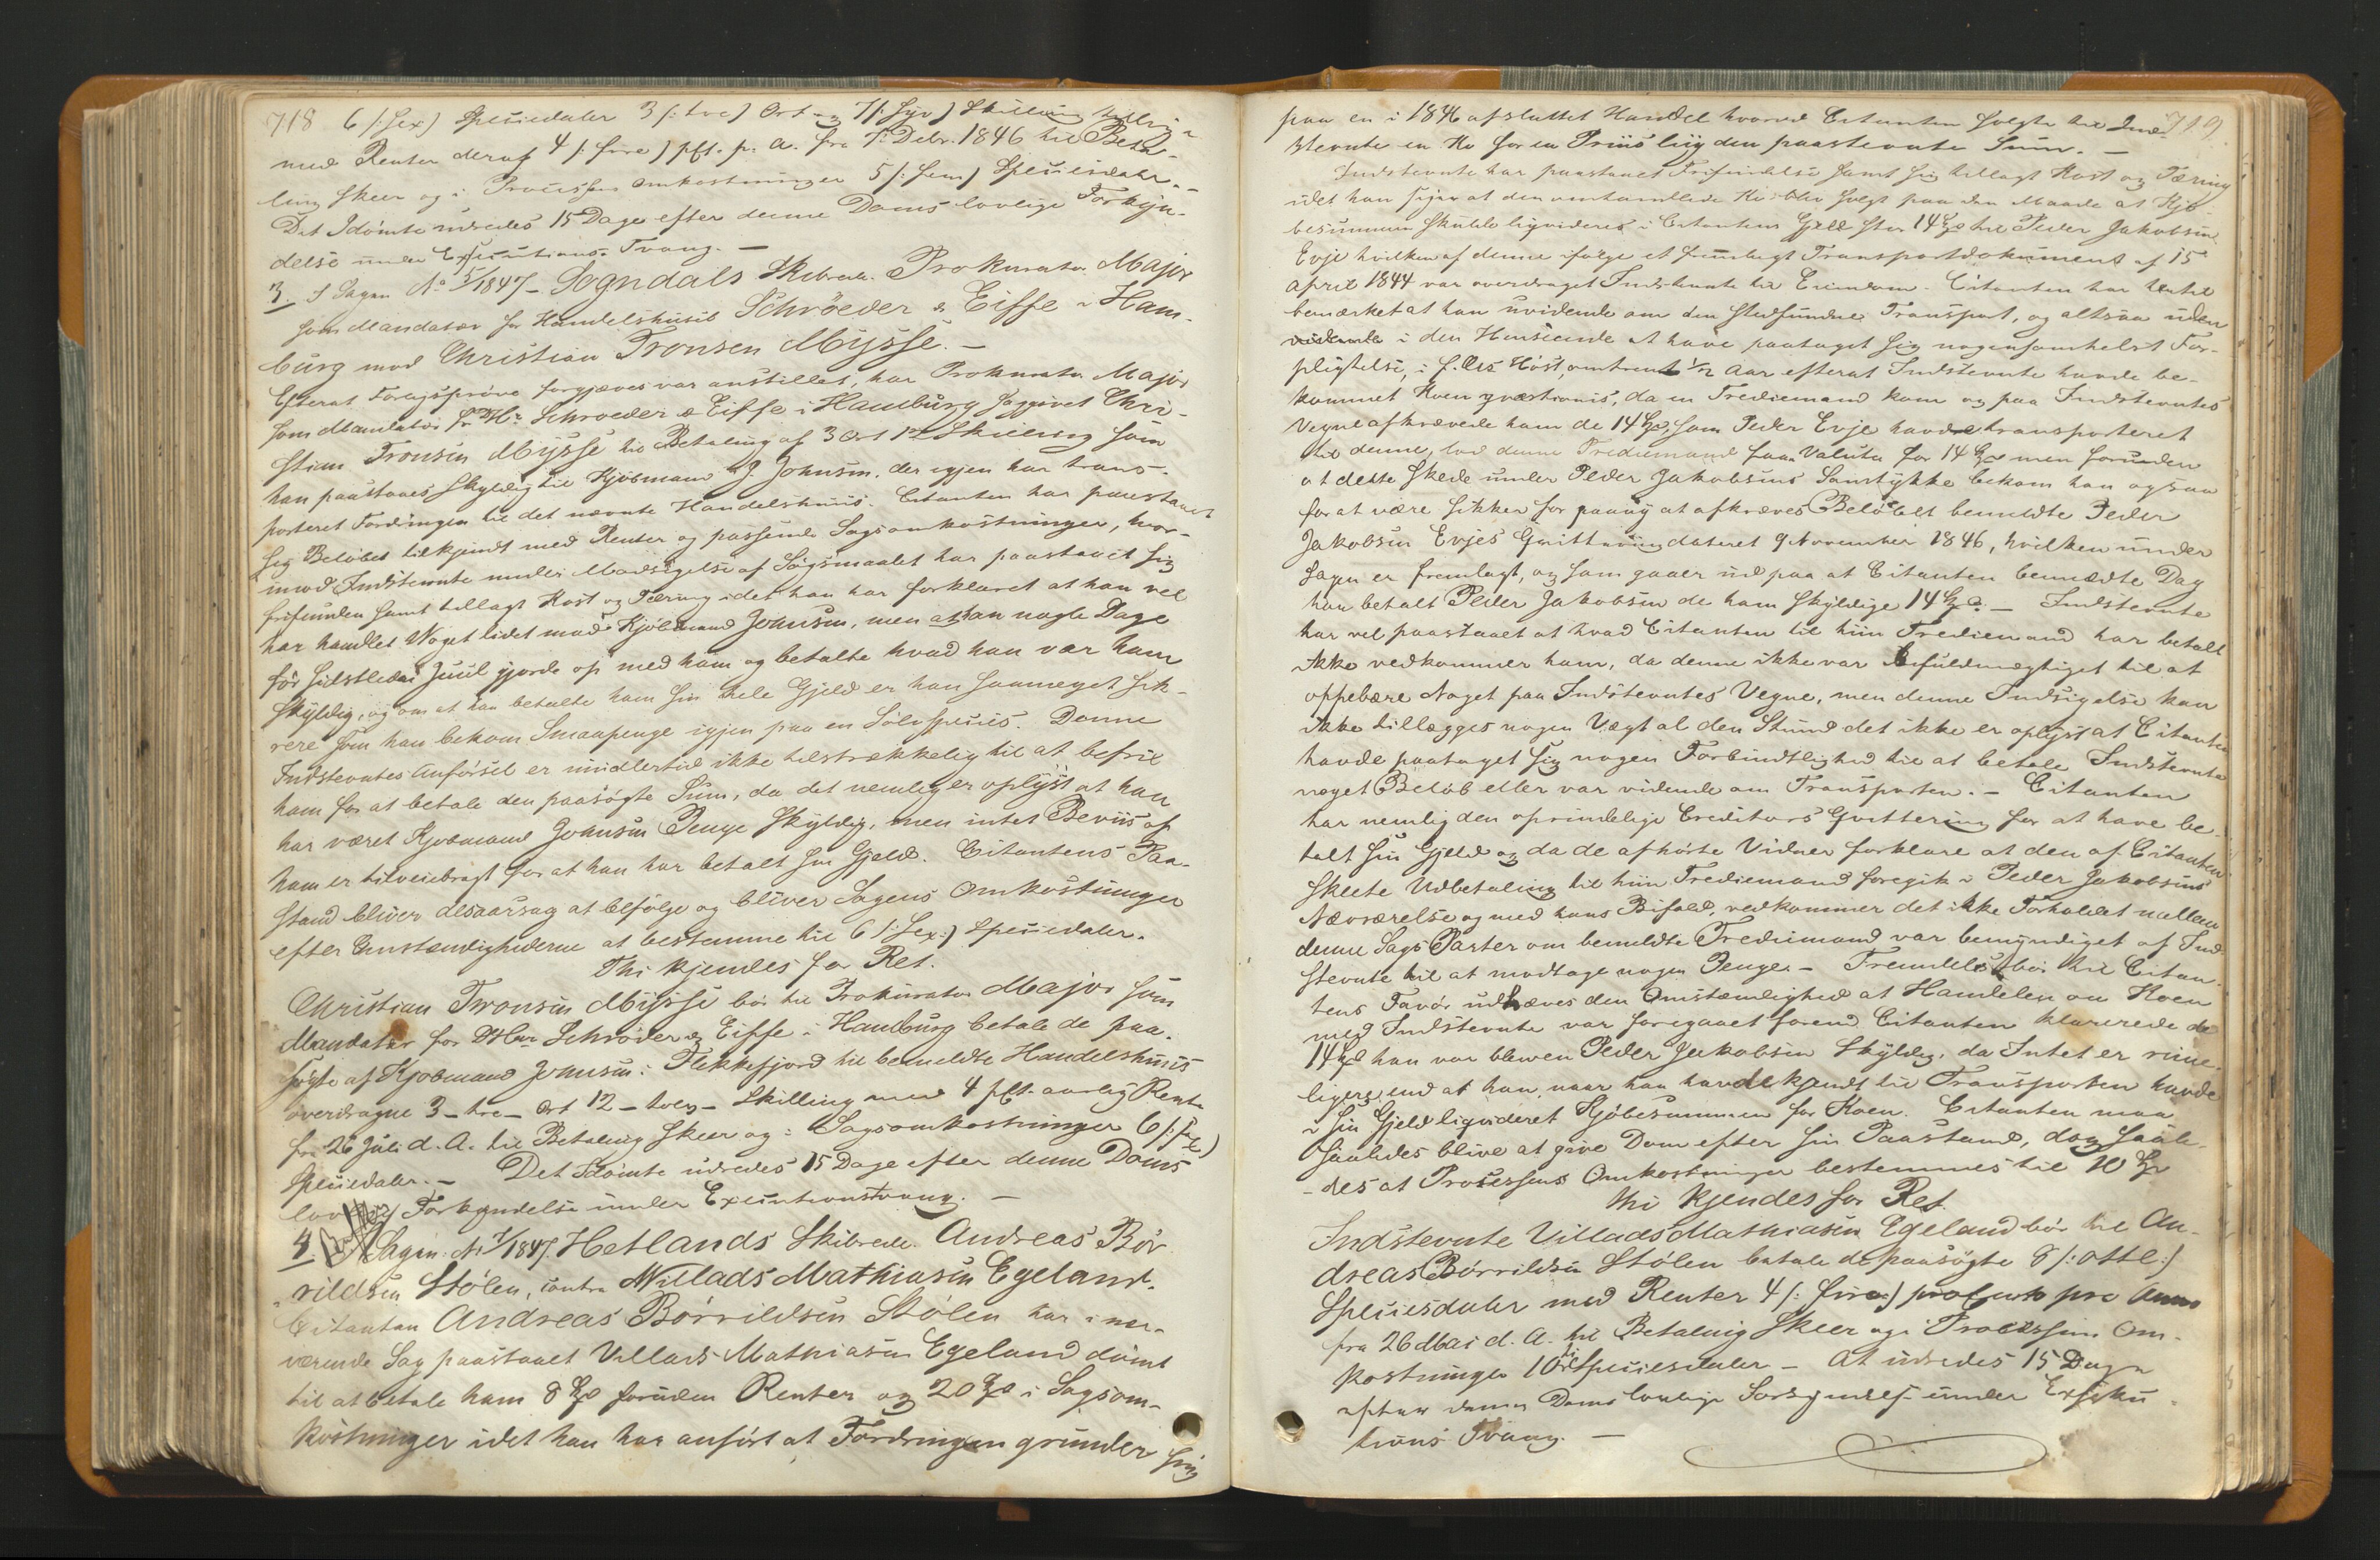 718 6 /: sex) Speciedaler 3 /: tre) Ort og 7 /: syv) Skilling tilligē
med Renter deraf 4 /: fire) pCt. p. a. fra 7. Debr. 1846 til Beta-
ling skeer og i Processens Omkostninger 5 /: fem) Speciesdaler. -
Det Idømte udredes 15 Dage efter denne Doms lovlige Forkyn-
delse under Executions Tvang. -
3. I Sagen No 5/1847 - Sogndals Skibrede. Prokurator Major
som Mandatar for Handelshuset Schröeder & Eiffe i Ham-
burg mod Christian Tronsen Mysse. -
Efterat Forligsprøve forgjæves var anstillet, har Prokurator Major
som Mandatar for DHr. Schroeder & Eiffe i Hamburg sagsøgt Chri-
stian Tronsen Mysse til Betaling af 3 Ort 12 Skilling som
han paastaaes skyldig til Kjøbmand J. Johnsen, der igjen har trans-
porteret Fordringen til det nævnte Handelshuus. Citanten har paastaaet
sig Beløbet tilkjendt med Renter og passende Sagsomkostninger, hvor-
imod Indstevnte under Modsigelse af Søgsmaalet har paastaaet sig
frifunden samt tillagt Kost og Tæring idet han har forklaret at han vel
har handlet Noget lidet med Kjøbmand Johnsen, men at han nogle Dage
før sidstleden Juul gjorde op med ham og betalte hvad han var ham
skyldig, og om at han betalte ham sin hele Gjeld er han saameget sik-
rere som han bekom Smaapenge igjen paa en Sølvspecies. Denne
Indstevntes Anførsel er imidlertid ikke tilstrækkelig til at befrie
ham for at betale den paasøgte Sum, da det nemlig er oplyst at han
har været Kjøbmand Johnsen Penge skyldig, men intet Beviis af
ham er tilveiebragt for at han har betalt sin Gjeld. Citantens Paa-
stand bliver desaarsag at befølge og bliver Sagens Omkostninger
efter Omstændighederne at bestemme til 6 /: sex:) Speciedaler.
Thi kjendes for Ret.
Christian Tronsen Mysse bør til Prokurator Major som
Mandatar for DHrr Schröder & Eiffe i Hamburg betale de paa-
søgte af Kjøbmand Johnsen i Flekkefjord til bemeldte Handelshuus
overdragne 3 - tre - Ort 12 - tolv - Skilling med 4 pCt. aarlig Rente
fra 26 Juli d. A. til Betaling skeer og i Sagsomkostninger 6 /: sex)
Speciedaler. - Det Idømte udredes 15 Dage efter denne Doms
lovlige Forkyndelse under Executionstvang. -
4. I Sagen No 7/1847. Hetlands Skibrede. Andreas Bør-
rildsen Stølen, contra Willads Mathiasen Egeland.
Citanten Andreas Børrildsen Stølen har i nær-
værende Sag paastaaet Villads Mathiasen Egeland dømt
til at betale ham 8 Spd foruden Renter og 20 Spd i Sagsom-
kostninger idet han har anført at Fordringen grunder sig
719
paa en i 1846 afsluttet Handel hvorved Citanten solgte til Ind-
stevnte en Ko for en Priis liig den paastevnte Sum. -
Indstevnte har paastaaet Frifindelse samt sig tillagt Kost og Tæring
idet han siger at den omhandlede Ko blev solgt paa den Maade at Kjø-
besummen skulde liqvideres i Citantens Gjeld stor 14 Spd til Peder Jakobsen
Evje hvilken af denne ifølge et fremlagt Transportdokument af 15
April 1844 var overdraget Indstevnte til Eiendom. Citanten har hertil
bemærket at han uvidende om den stedfundne Transport, og altsaa uden
i den Henseende at have paataget sig nogensomhelst For-
pligtelse, i f. Års Høst, omtrent ½ Aar efterat Indstevnte havde be-
kommet Koen qvæstionis, da en Trediemand kom og paa Indstevntes
Vegne afkrævede ham de 14 Spd, som Peder Evje havde transporteret
til denne, lod denne Trediemand faae Valuta for 14 Spd men foruden
at dette skede under Peder Jakobsens Samtykke bekom han ogsaa
for at være sikker for paany at afkræves Beløbet bemeldte Peder
Jakobsen Evjes Qvittering dateret 9 November 1846, hvilken under
Sagen er fremlagt, og som gaaer ud paa at Citanten bemeldte Dag
har betalt Peder Jakobsen de ham skyldige 14 Spd. - Indstevnte
har vel paastaaet at hvad Citanten til hiin Trediemand har betalt
ikke vedkommer ham, da denne ikke var befuldmægtiget til at
oppebære Noget paa Indstevntes Vegne, men denne Indsigelse kan
ikke tillægges nogen Vægt al den Stund det ikke er oplyst at Citanten
havde paataget sig nogen Forbindtlighed til at betale Indstevnte
noget Beløb eller var vidende om Transporten. - Citanten
har nemlig den oprindelige Creditors Qvittering for at have be-
talt sin Gjeld og da de afhørte Vidner forklare at den af Citanten
skeete Udbetaling til hiin Trediemand foregik i Peder Jakobsens
Nærværelse og med hans Bifald, vedkommer det ikke Forholdet mellem
denne Sags Parter om bemeldte Trediemand var bemyndiget af Ind-
stevnte til at modtage nogen Penge. - Fremdeles bør til Citan-
tens Favør udhæves den Omstændighed at Handelen om Koen
med Indstevnte var foregaaet forend Citanten klarerede de
14 Spd han var bleven Peder Jakobsen skyldig, da Intet er rime-
ligere end at han, naar han havde kjendt til Transporten havde
i sin Gjeld liqvideret Kjøbesummen for Koen. Citanten maa
saaledes blive at give Dom efter sin Paastand, dog saale-
- des at Processens Omkostninger bestemmes til 10 Spd
Thi kjendes for Ret.
Indstevnte Villads Mathiasen Egeland bør til An-
dreas Børrildsen Stølen betale de paasøgte 8 /: otte:)
Speciesdaler med Renter 4 /: fire:) procent pro Anno
fra 26 Mai d. A. til Betaling skeer og i Processens Om-
kostninger 10 ti Speciesdaler - At udredes 15 Dage
efter denne Doms lovlige Forkyndelse under Exseku-
tions Tvang. -